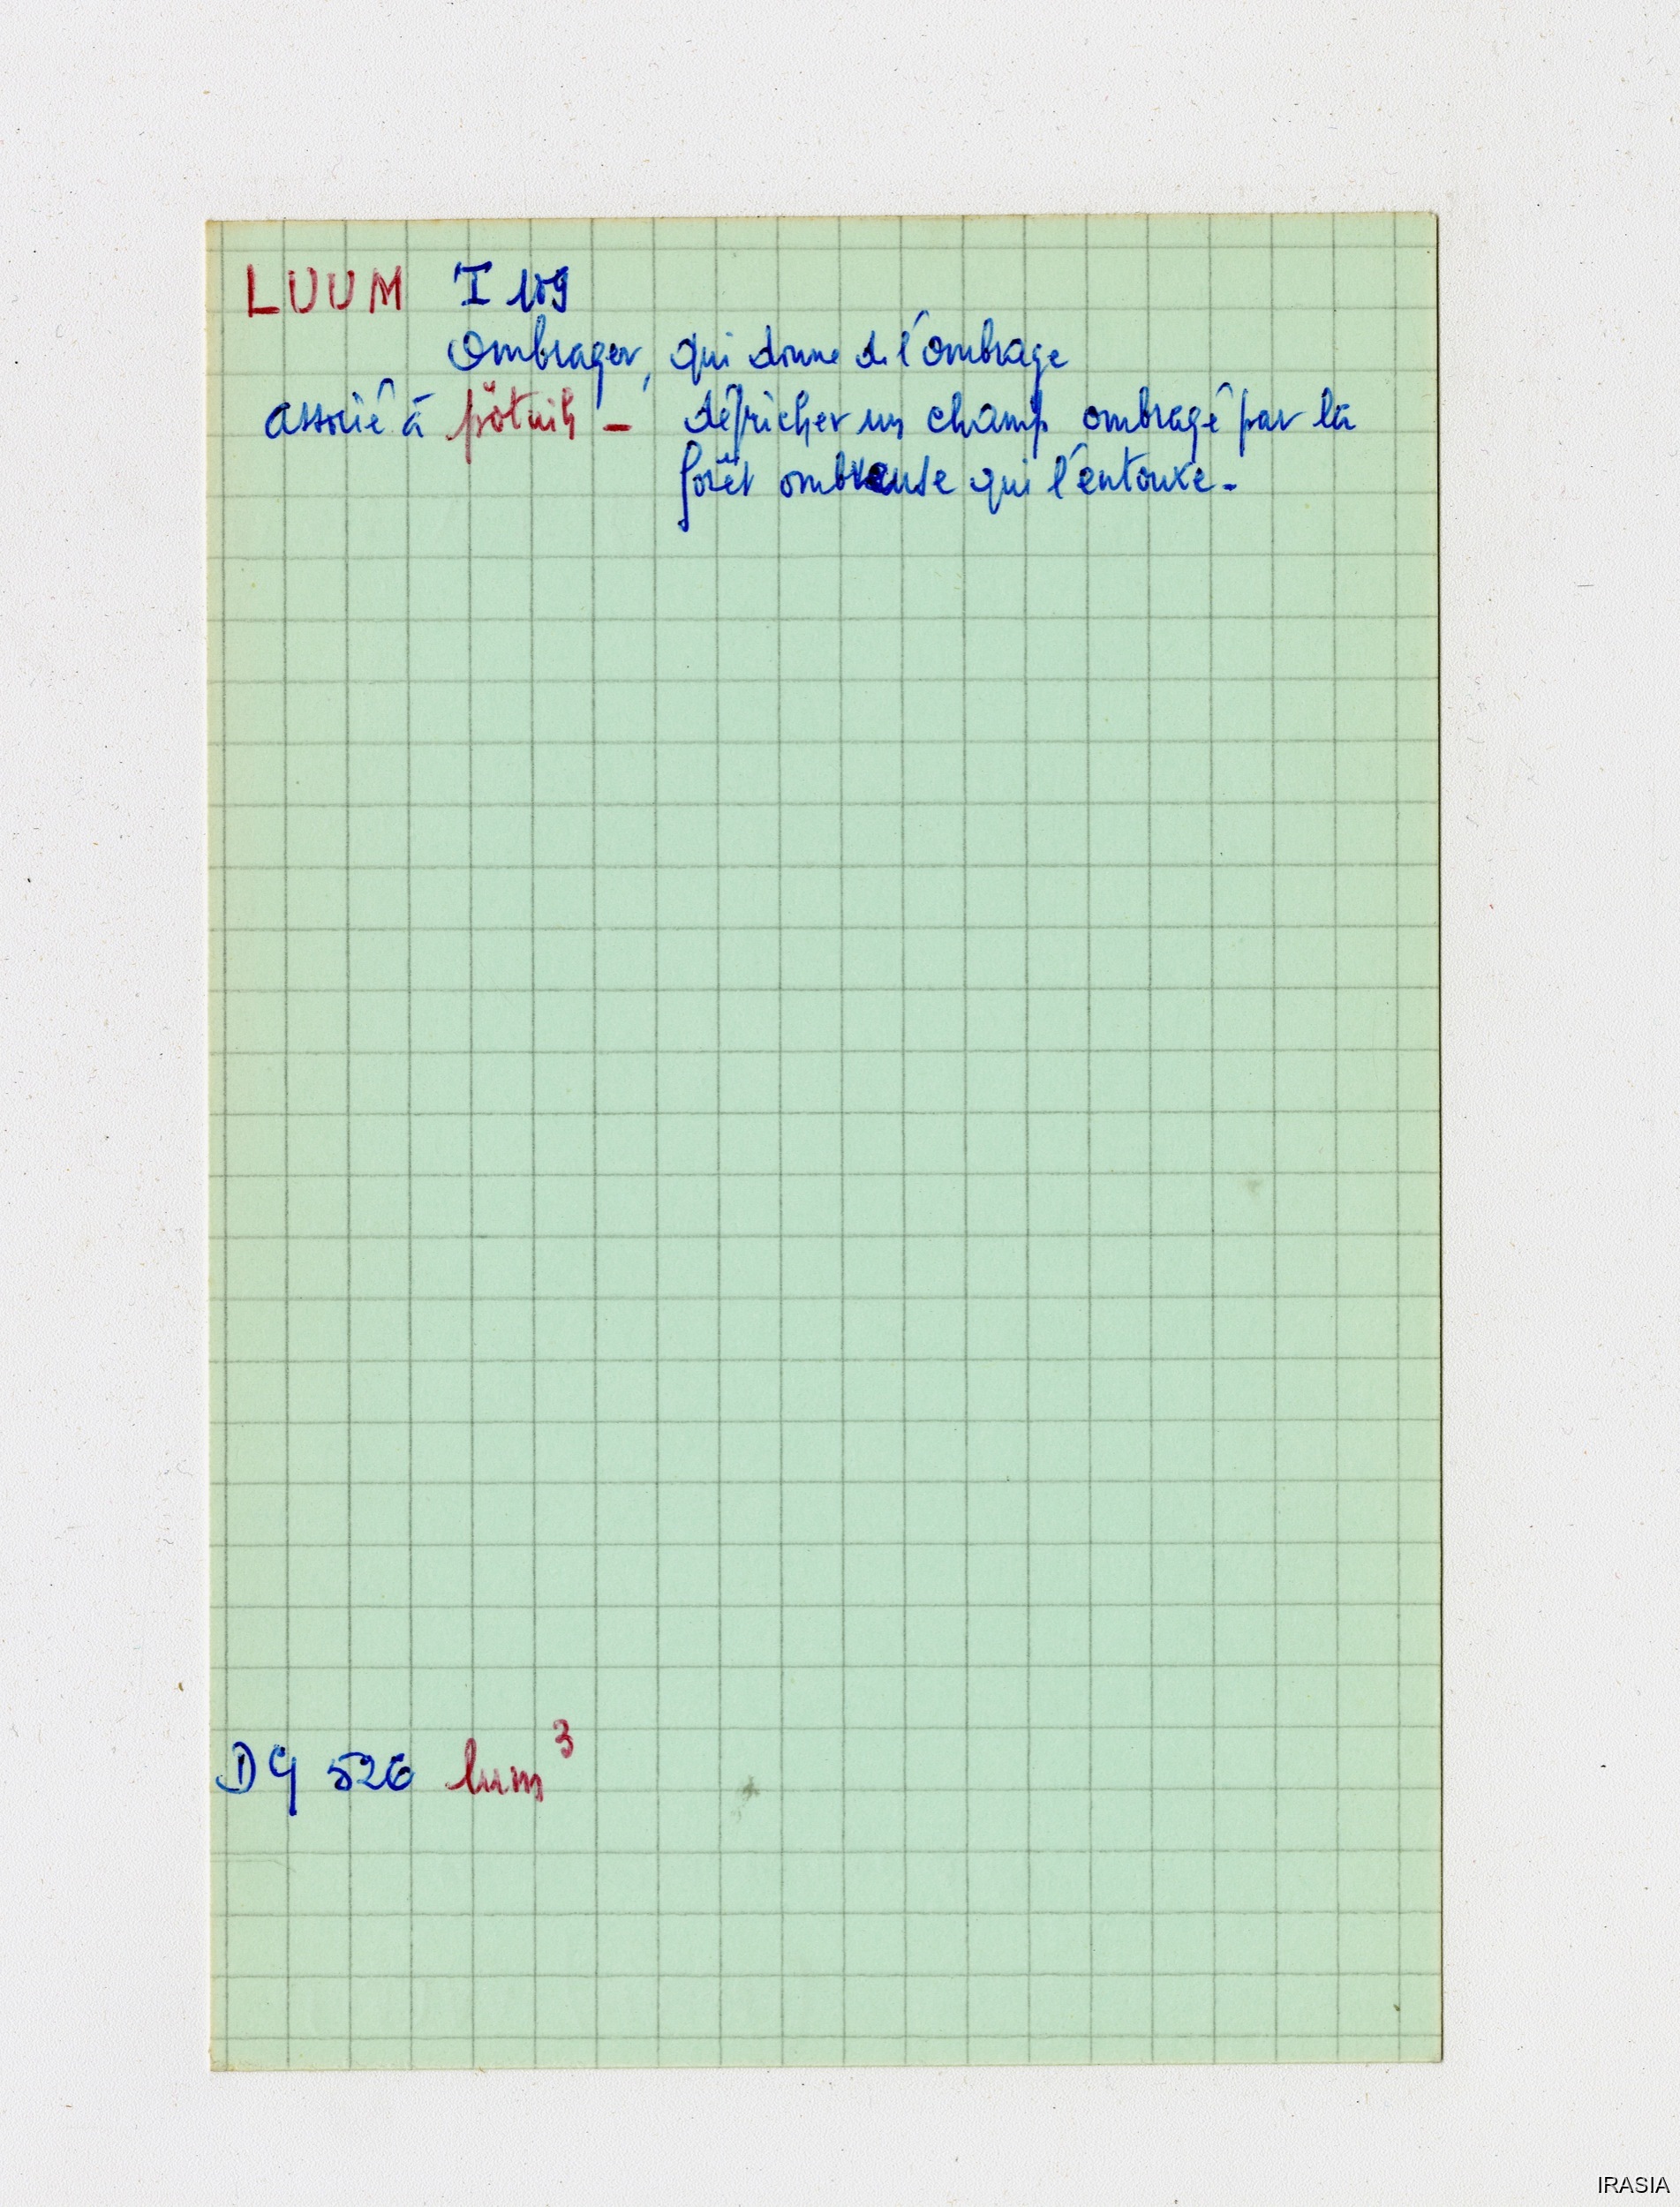 LUUM I 109
Ombrager, qui donne de l'ombrage
associé à pötuih - défricher un champ ombragé par la
forêt ombreuse qui l'entoure -
DG 526 lum³
IRASIA